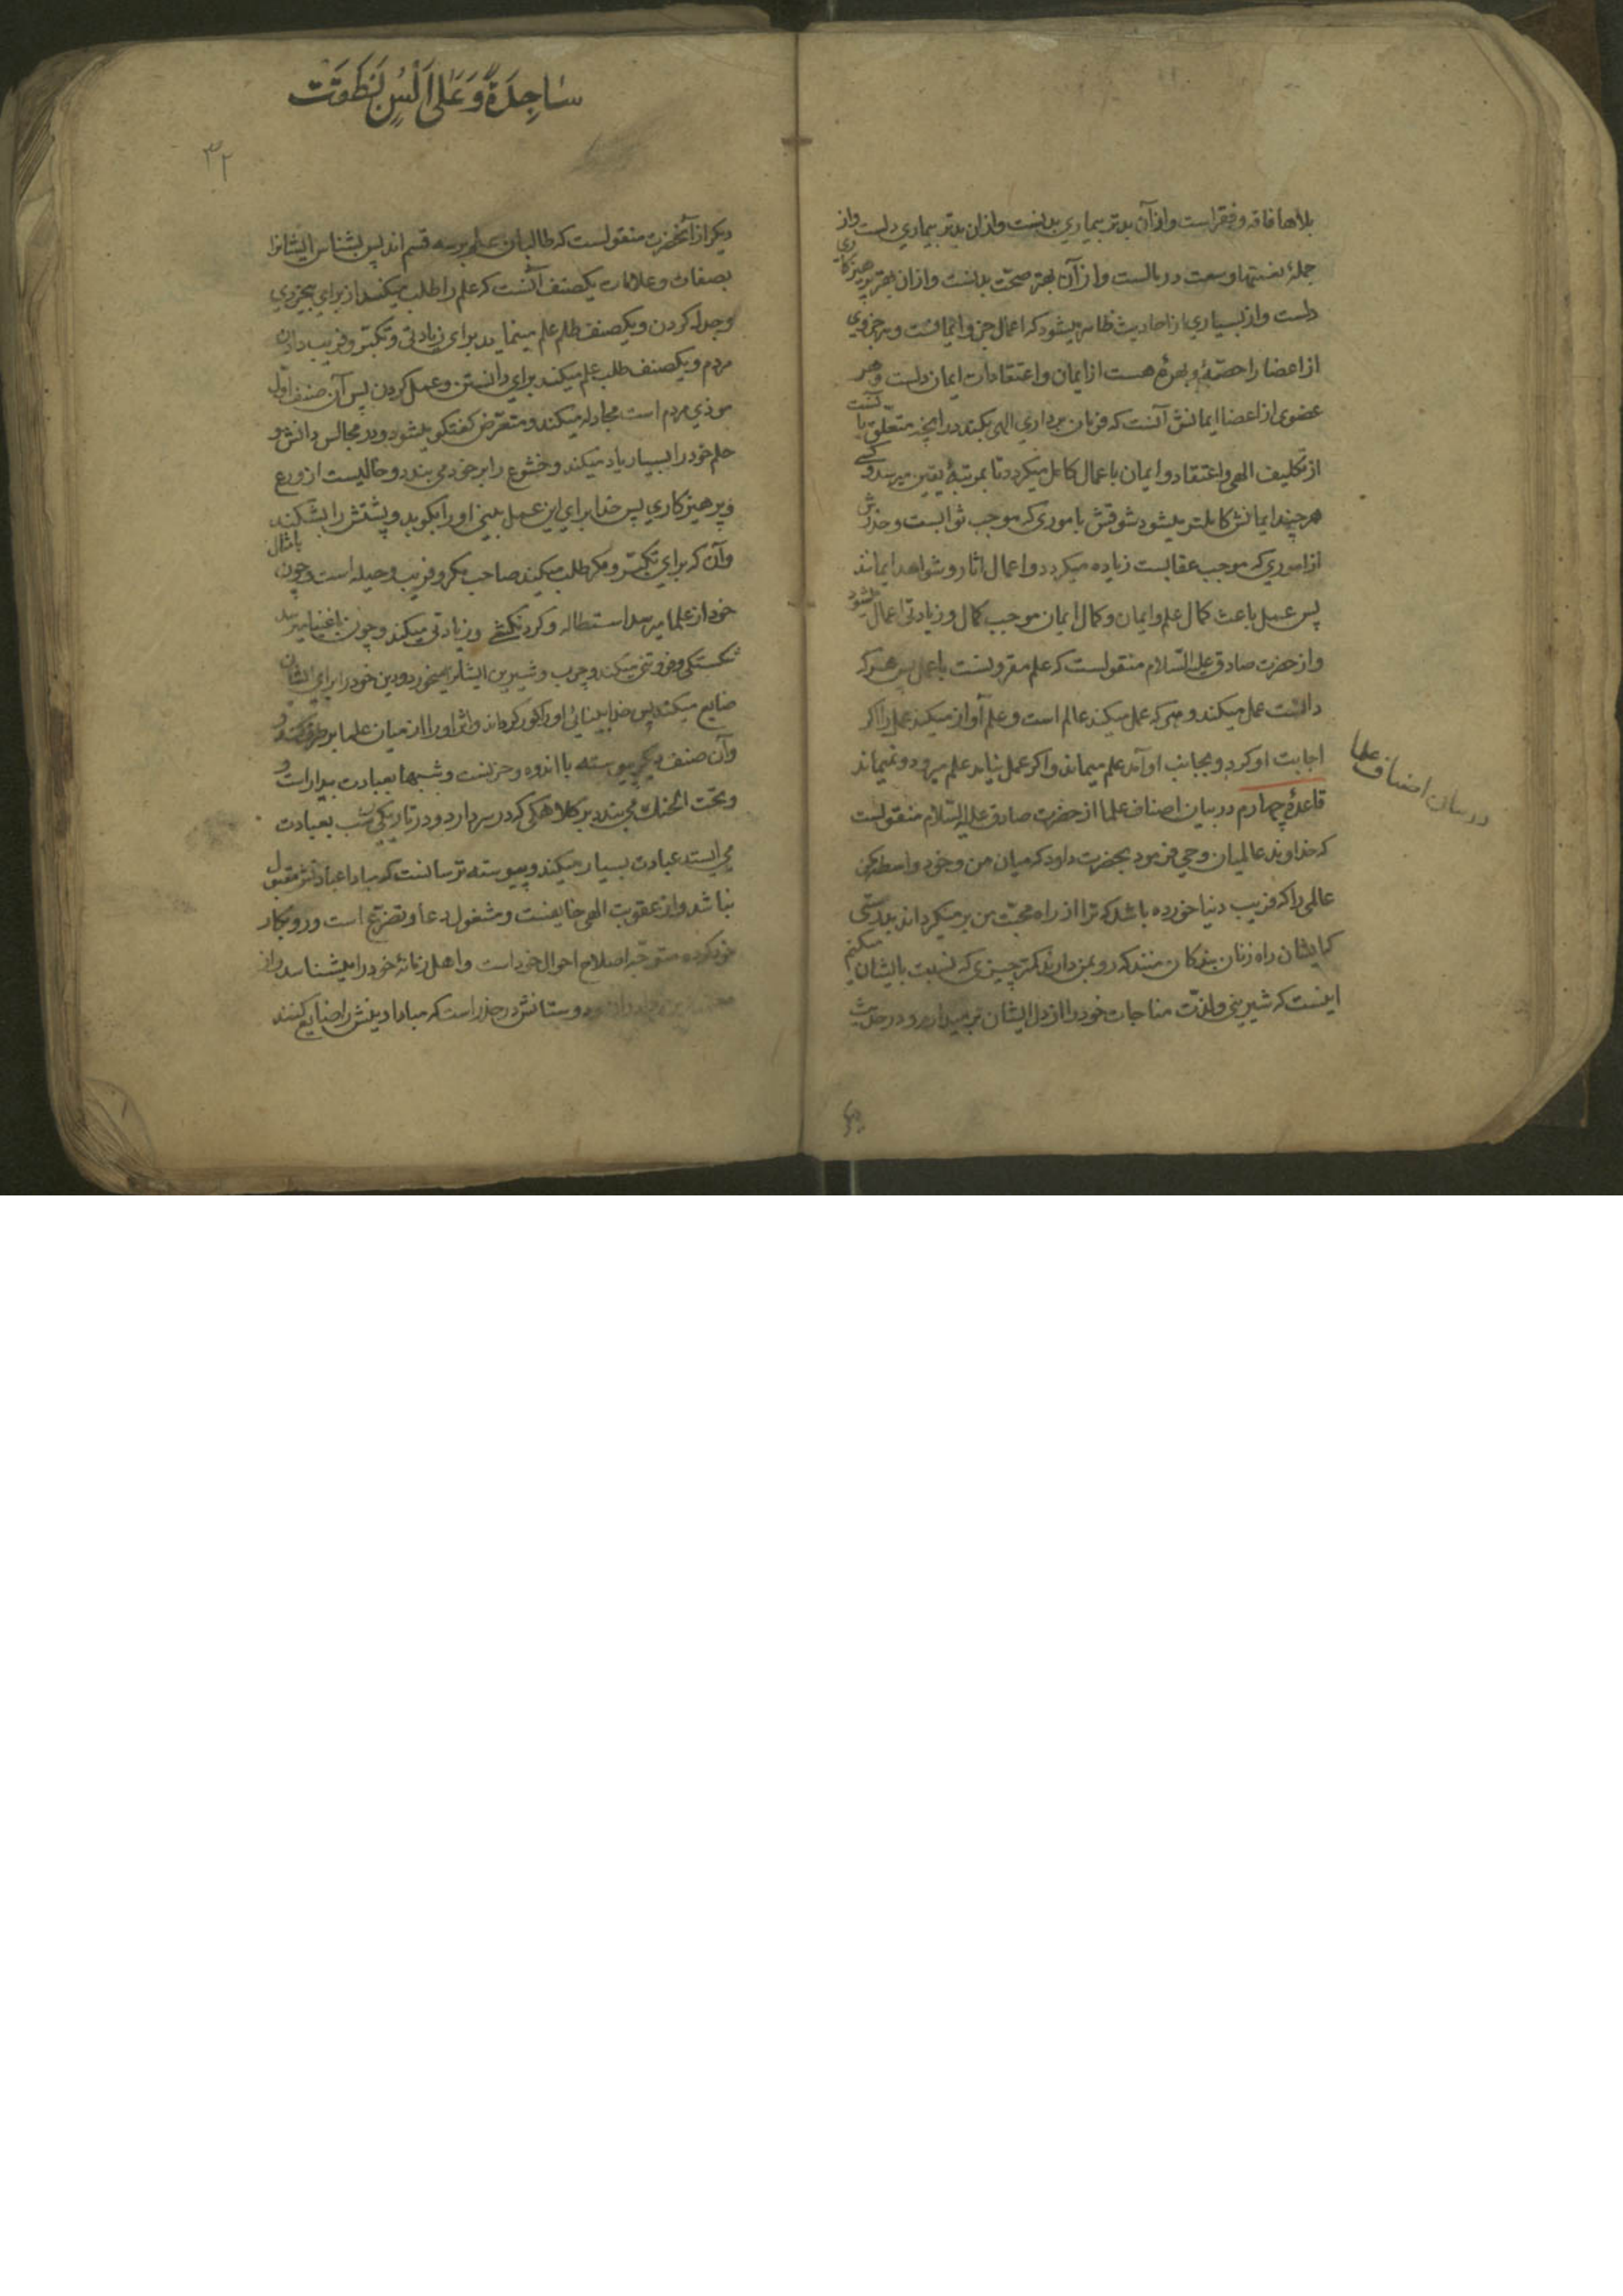 بلاها فاقه و فقراست و از آن بدتر بیماری بدنست و از ان بدتر بیماری دلست و از
جملهٔ نعمتها وسعت در مالست و از آن بهتر صحّت بدنست و از ان بهتر پرهیزکاری
دلست و از بسیاری از احادیث ظاهر میشود که اعمال جزو ایمانست و هر جزوی
از اعضا را حصّهٔ و بهرهٔ هست از ایمان و اعتقادات ایمان دلست و هر
عضوی از اعضا ایمانش آنست که فرمان برداری الهی بکند در آنچه متعلّق باٰنست
از تکلیف الهی و اعتقاد و ایمان باعمال کامل میکردد تا بمرتبهٔ یقین میرسد و کسی
هرچند ایمانش کاملتر میشود شوقش باموری که موجب ثوابست و حذرش
از اموری که موجب عقابست زیاده میکردد و اعمال اثار و شواهد ایمانند
پس عمل باعث کمال علم و ایمان و کمال ایمان موجب کمال و زیادتی اعمال میشود
و از حضرت صادق علیه السّلام منقولست که علم مقرونست باعمل پس هر که
دانست عمل میکند و هر که عمل میکند عالم است و علم آواز میکند عمل را اکر
اجابت او کرد و بجانب او آمد علم میماند و اکر عمل نیامد علم میرود و نمیماند
قاعدهٔ چهارم در بیان اصناف علما از حضرت صادق علیه السّلام منقولست
که خداوند عالمیان وحی فرمود بحضرت داود که میان من و خود واسطه مکن
عالمی را که فریب دنیا خورده باشد که ترا از راه محبّت من بر میکرداند بدرستی
که ایشان راه زنان بندکان منند که رو بمن دارند کمتر چیزی که نسبت بایشان میکنم
اینست که شیرینی و لذّت مناجات خود را از دل ایشان بر میدارم و در حدیث
در بیان اصناف علما
دیکر
ساجِدَةً وَ عَلىٰ اَلْسُنٍ نَطَقَتْ
۳۲
دیکر از آنحضرت منقولست که طالبان علم بر سه قسم اند پس بشناس ایشانرا
بصفات و علامات یکصنف آنست که علم را طلب میکنند از برای بیخردی
و جدل کردن و یکصنف طلب علم مینماید برای زیادتی و تکبّر و فریب دادن
مردم و یکصنف طلب علم میکند برای دانستن و عمل کردن پس آن صنف اوّل
موذی مردم است مجادله میکند و متعرّض کفتکو میشود و در مجالس دانش و
حلم خود را بسیار یاد میکند و خشوع را بر خود می بندد و خالیست از ورع
و پرهیزکاری پس خدا برای این عمل بینی او را بکوبد و پشتش را بشکند
و آن که برای تکبّر و مکر طلب میکند صاحب مکر و فریب و حیله است و چون بامثال
خود از علما میرسد استطاله و کردنکشی و زیادتی میکند و چون باغنیا میرسد
شکستکی و فروتنی میکند و چرب و شیرین ایشانرا میخورد و دین خود را برای ایشان
ضایع میکند پس خدا بینائی او را کور کرداند و اثر او را از میان علما برطرف کند و
و آن صنف دیکر پیوسته با اندوه و حزنست و شبها بعبادت بیدار است و
و تحت الحنک می بندد بر کلاهکی که در سر دارد و در تاریکی شب بعبادت
می ایستد عبادت بسیار میکند و پیوسته ترسانست که مبادا عبادتش مقبول
نباشد و از عقوبت الهی خایفست و مشغول دعا و تضرّع است و رو بکار
خود کرده متوجّه اصلاح احوال خود است و اهل زمانهٔ خود را میشناسد و از
دوستانش در حذر است که مبادا دینش را ضایع کنند